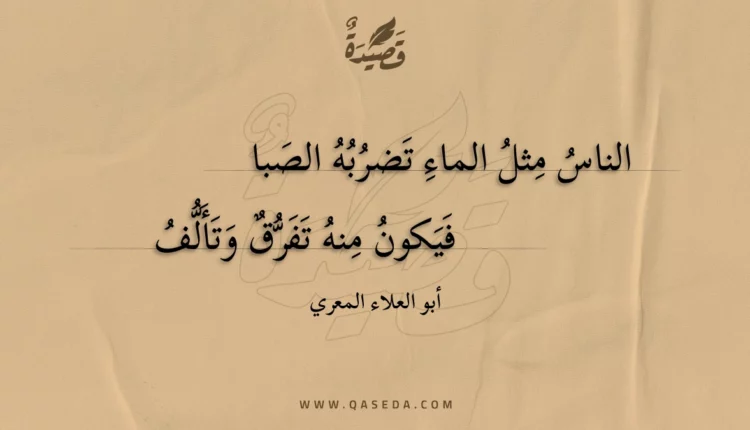 قَصِيدَةٌ
الناسُ مِثلُ الماءِ تَضرُبُهُ الصَبا
فَيَكونُ مِنهُ تَفَرُّقٌ وَتَأَلُّفُ
أبو العلاء المعري
WWW.QASEDA.COM